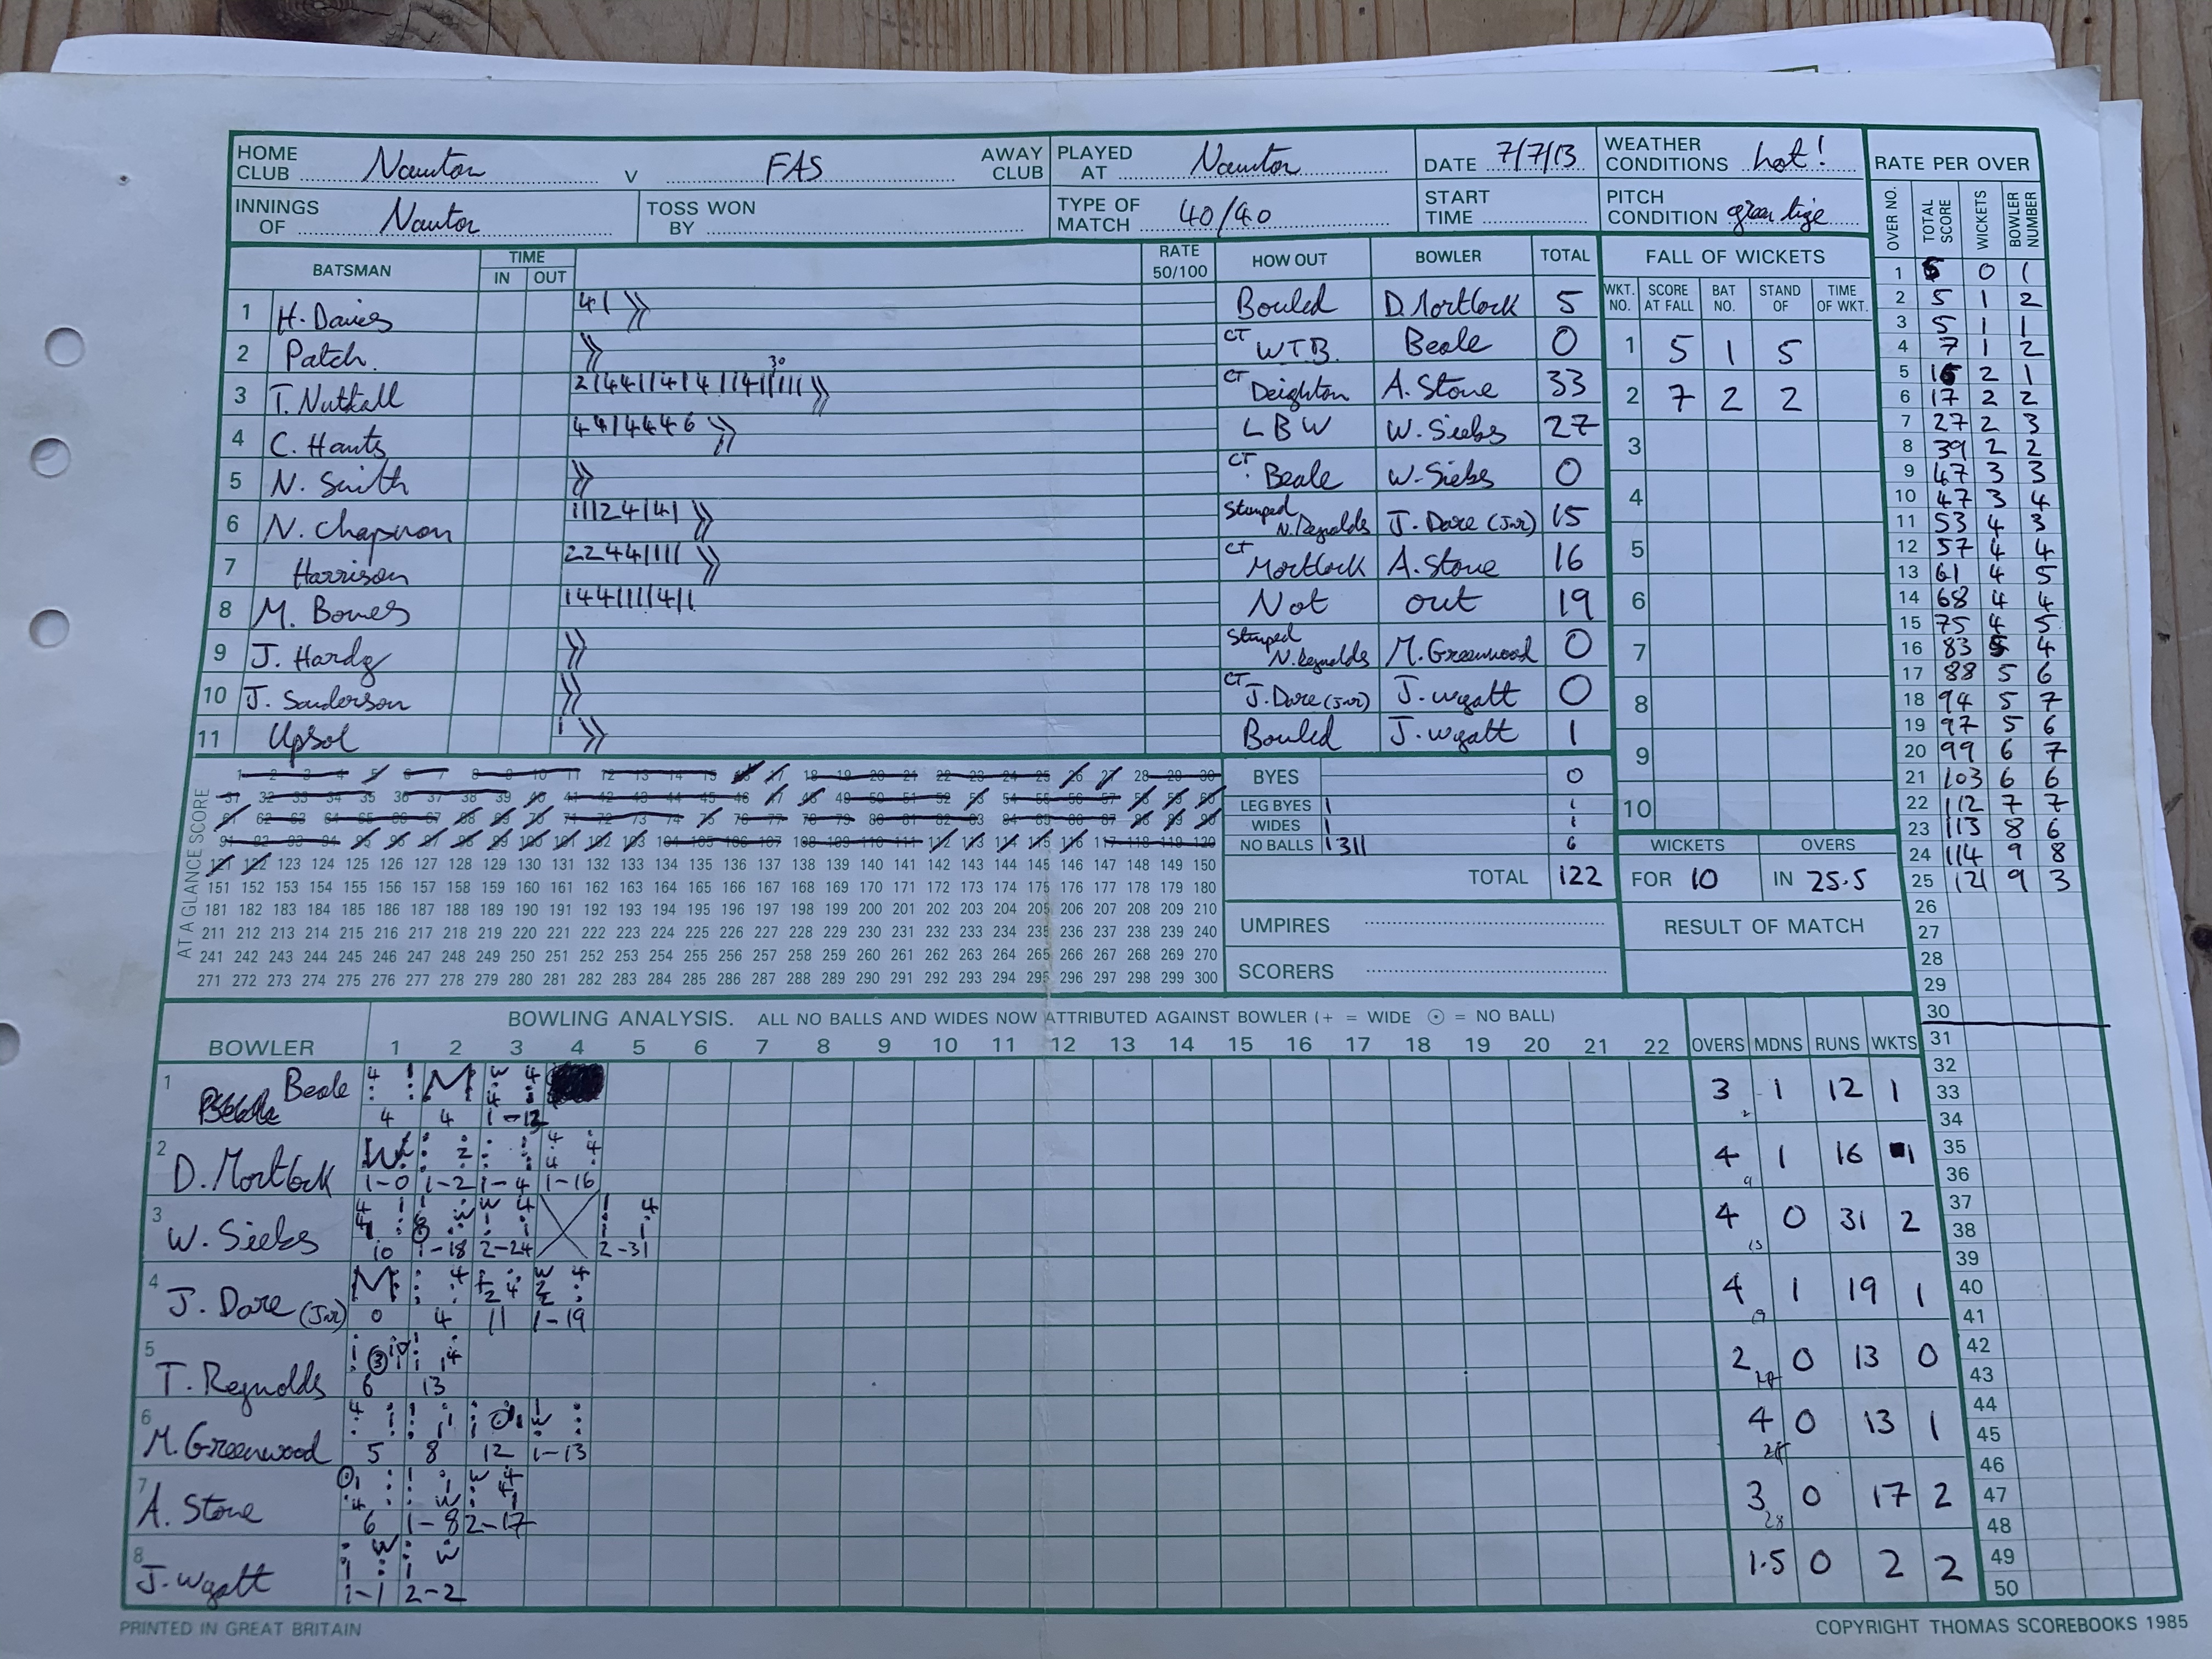 HOME CLUB Naunton V FAS AWAY CLUB PLAYED AT Naunton DATE 7/7/13 WEATHER CONDITIONS hot! RATE PER OVER
INNINGS OF Naunton TOSS WON BY TYPE OF MATCH 40/40 START TIME PITCH CONDITION green tige OVER NO. TOTAL SCORE WICKETS BOWLER NUMBER
BATSMAN TIME IN OUT RATE 50/100 HOW OUT BOWLER TOTAL FALL OF WICKETS
WKT. NO. SCORE AT FALL BAT NO. STAND OF TIME OF WKT.
1 H. Davies 41 Bowled D. Mortlock 5
2 Patch. CT W.T.B. Beale 0
3 T. Nuttall 30 CT Deighton A. Stone 33
4 C. Hants 4414446 LBW W. Siebs 27
5 N. Smith CT Beale W. Siebs 0
6 N. Chapman 11124141 Stumped N. Reynolds J. Dare (Jnr) 15
7 Harrison 22441111 CT Mortlock A. Stone 16
8 M. Bowes 1441111411 Not out 19
9 J. Hardy Stumped N. Reynolds M. Greenwood 0
10 J. Sanderson CT J. Dare (Jnr) J. Wyatt 0
11 Upsol 1 Bowled J. Wyatt 1
1 5 1 5
2 7 2 2
3
4
5
6
7
8
9
10
1 5 0 1
2 5 1 2
3 5 1 1
4 7 1 2
5 16 2 1
6 17 2 2
7 27 2 3
8 39 2 2
9 47 3 3
10 47 3 4
11 53 4 3
12 57 4 4
13 61 4 5
14 68 4 4
15 75 4 5
16 83 5 4
17 88 5 6
18 94 5 7
19 97 5 6
20 99 6 7
21 103 6 6
22 112 7 7
23 113 8 6
24 114 9 8
25 121 9 3
26
27
28
29
30
31
32
33
34
35
36
37
38
39
40
41
42
43
44
45
46
47
48
49
50
AT A GLANCE SCORE
1 2 3 4 5 6 7 8 9 10 11 12 13 14 15 16 17 18 19 20 21 22 23 24 25 26 27 28 29 30
31 32 33 34 35 36 37 38 39 40 41 42 43 44 45 46 47 48 49 50 51 52 53 54 55 56 57 58 59 60
61 62 63 64 65 66 67 68 69 70 71 72 73 74 75 76 77 78 79 80 81 82 83 84 85 86 87 88 89 90
91 92 93 94 95 96 97 98 99 100 101 102 103 104 105 106 107 108 109 110 111 112 113 114 115 116 117 118 119 120
121 122 123 124 125 126 127 128 129 130 131 132 133 134 135 136 137 138 139 140 141 142 143 144 145 146 147 148 149 150
151 152 153 154 155 156 157 158 159 160 161 162 163 164 165 166 167 168 169 170 171 172 173 174 175 176 177 178 179 180
181 182 183 184 185 186 187 188 189 190 191 192 193 194 195 196 197 198 199 200 201 202 203 204 205 206 207 208 209 210
211 212 213 214 215 216 217 218 219 220 221 222 223 224 225 226 227 228 229 230 231 232 233 234 235 236 237 238 239 240
241 242 243 244 245 246 247 248 249 250 251 252 253 254 255 256 257 258 259 260 261 262 263 264 265 266 267 268 269 270
271 272 273 274 275 276 277 278 279 280 281 282 283 284 285 286 287 288 289 290 291 292 293 294 295 296 297 298 299 300
BYES 0
LEG BYES 1 1
WIDES 1 1
NO BALLS 1311 6
TOTAL 122
WICKETS OVERS
FOR 10 IN 25.5
UMPIRES
SCORERS
RESULT OF MATCH
BOWLING ANALYSIS. ALL NO BALLS AND WIDES NOW ATTRIBUTED AGAINST BOWLER (+ = WIDE ⊙ = NO BALL)
BOWLER 1 2 3 4 5 6 7 8 9 10 11 12 13 14 15 16 17 18 19 20 21 22 OVERS MDNS RUNS WKTS
1 Beale 4 4 1-12 3 1 12 1
2 D. Mortlock 1-0 1-2 1-4 1-16 4 1 16 1
3 W. Siebs 10 1-18 2-24 2-31 4 0 31 2
4 J. Dare (Jnr) 0 4 11 1-19 4 1 19 1
5 T. Reynolds 6 13 2 0 13 0
6 M. Greenwood 5 8 12 1-13 4 0 13 1
7 A. Stone 6 1-8 2-17 3 0 17 2
8 J. Wyatt 1-1 2-2 1.5 0 2 2
PRINTED IN GREAT BRITAIN COPYRIGHT THOMAS SCOREBOOKS 1985